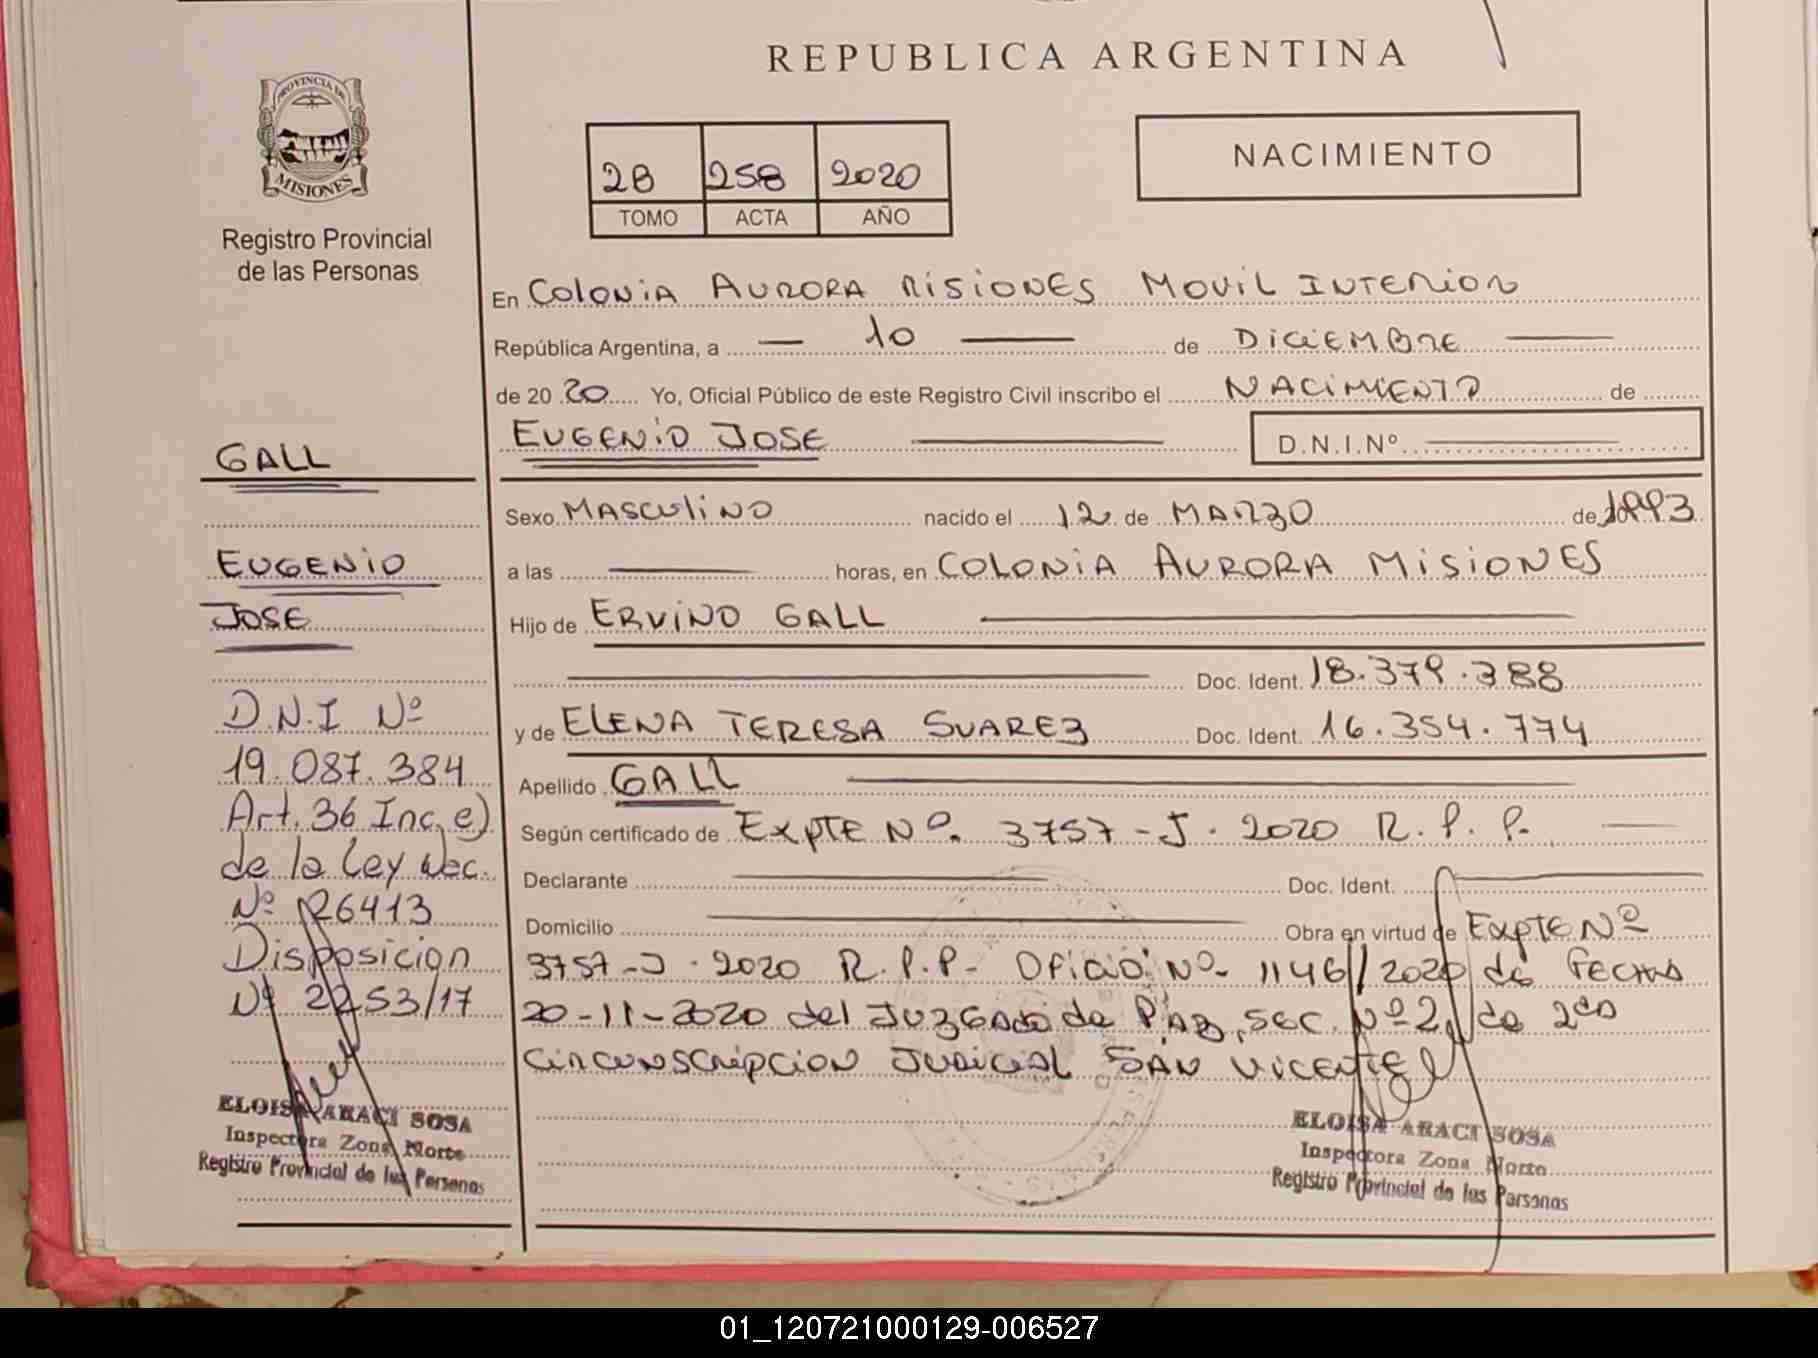 REPUBLICA ARGENTINA
PROVINCIA DE
MISIONES
Registro Provincial
de las Personas
2B 258 2020
TOMO ACTA AÑO
NACIMIENTO
En COLONIA AURORA MISIONES MOVIL INTERIOR
República Argentina, a — 10 — de DICIEMBRE —
de 20 20 Yo, Oficial Público de este Registro Civil inscribo el NACIMIENTO de
EUGENIO JOSE — D.N.I.Nº —
Sexo MASCULINO nacido el 12 de MARZO de 1993
a las — horas, en COLONIA AURORA MISIONES
Hijo de ERVINO GALL —
— Doc. Ident. 18.379.388
y de ELENA TERESA SUAREZ Doc. Ident. 16.354.774
Apellido GALL —
Según certificado de EXPTE Nº. 3757-J. 2020 R.P.P. —
Declarante — Doc. Ident. —
Domicilio — Obra en virtud de EXPTE Nº
3757-J. 2020 R.P.P- OFICIO Nº- 1146/2020 de FECHA
20-11-2020 del JUZGADO de PAZ, SEC. Nº 2, de 2da
CIRCUNSCRIPCION JUDICIAL SAN VICENTE
ELOISA ARACI SOSA
Inspectora Zona Norte
Registro Provincial de las Personas
GALL
EUGENIO
JOSE
D.N.I Nº
19.087.384
Art. 36 Inc, e)
de la Ley Nac.
Nº 26413
Disposicion
Nº 2253/17
ELOISA ARACI SOSA
Inspectora Zona Norte
Registro Provincial de las Personas
01_120721000129-006527